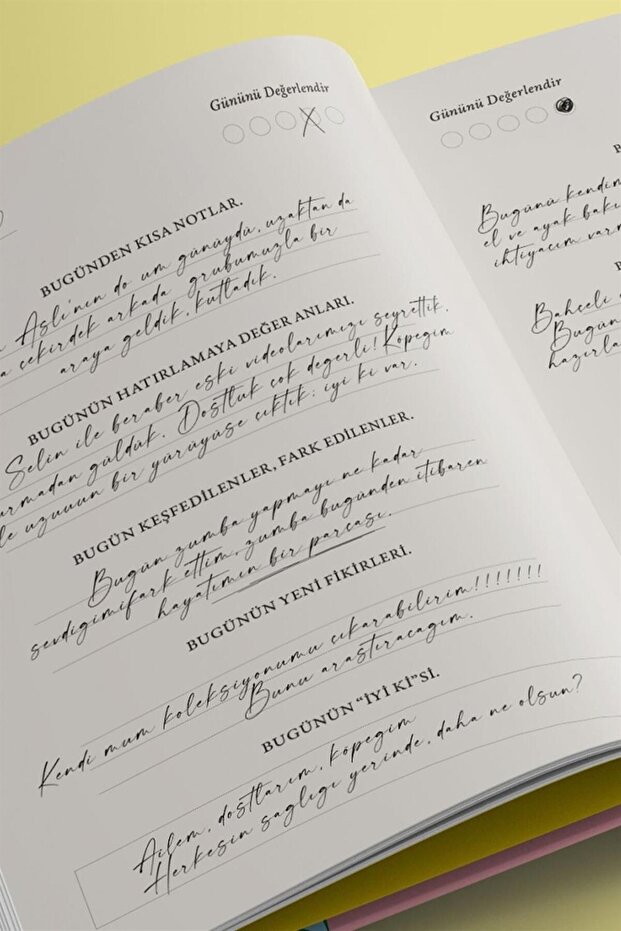 Gününü Değerlendir
BUGÜNDEN KISA NOTLAR.
Aslı'nın do um günüydü, uzaktan da
çekirdek arkada grubumuzla bir
araya geldik, kutladık.
BUGÜNÜN HATIRLAMAYA DEĞER ANLARI.
Selin ile beraber eski videolarımızı seyrettik.
urmadan güldük. Dostluk çok degerli! Köpegim
le uzuuun bir yürüyüse cıktık: iyi ki var.
BUGÜN KEŞFEDİLENLER, FARK EDİLENLER.
Bugün zumba yapmayı ne kadar
sevdigimifark ettim, zumba bugünden itibaren
hayatımın bir parcası.
BUGÜNÜN YENİ FİKİRLERİ.
Kendi mum koleksiyonumu cıkarabilirim!!!!!!!
Bunu arastıracagım.
BUGÜNÜN “İYİ Kİ”Sİ.
Ailem, dostlarım, köpegim
Herkesin saglıgı yerinde, daha ne olsun?
Gününü Değerlendir
Bugünü kendim
el ve ayak bakı
ihtiyacım varm
Bahceli
Bugün
hazırla